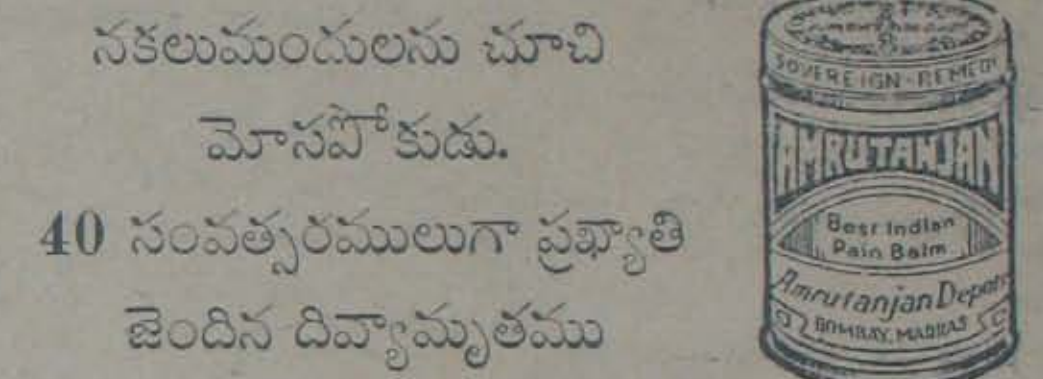 నకలుమందులను చూచి
మోసపోకుడు.
40 సంవత్సరములుగా ప్రఖ్యాతి
జెందిన దివ్యామృతము
SOVEREIGN-REMEDY
AMRUTANJAN
Best Indian
Pain Balm
Amrutanjan Depot
BOMBAY, MADRAS